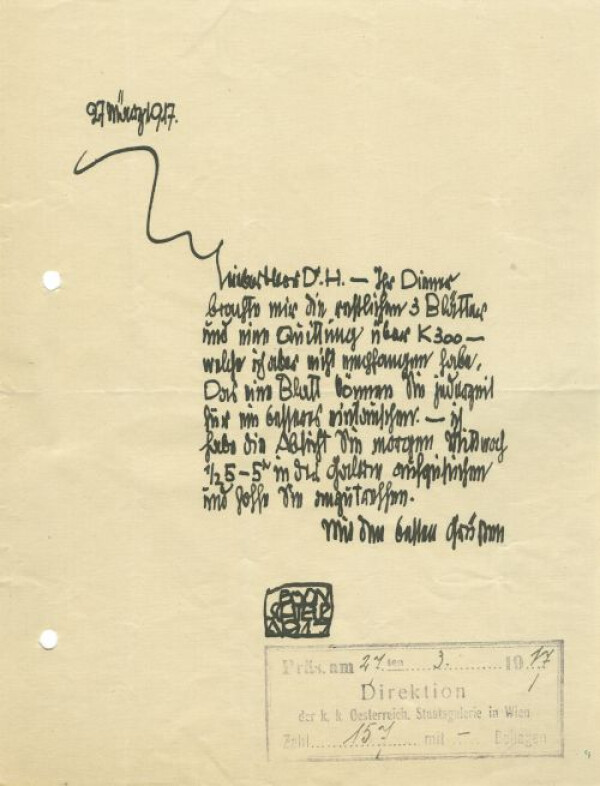 27 März 1917.
Lieber Herr Dr. H. — Ihr Diener
brachte mir die restlichen 3 Blätter
und eine Quittung über K 300 —
welche ich aber nicht empfangen habe.
Das eine Blatt können Sie jederzeit
für ein besseres eintauschen. — ich
habe die Absicht Sie morgen Mittwoch
1/2 5 – 5h in der Galerie aufzusuchen
und hoffe Sie anzutreffen.
Mit den besten Grüßen
EGON
SCHIELE
1917
Präs. am 27ten 3. 1917
Direktion
der k. k. Oesterreich. Staatsgalerie in Wien
Zahl 157 mit – Beilagen